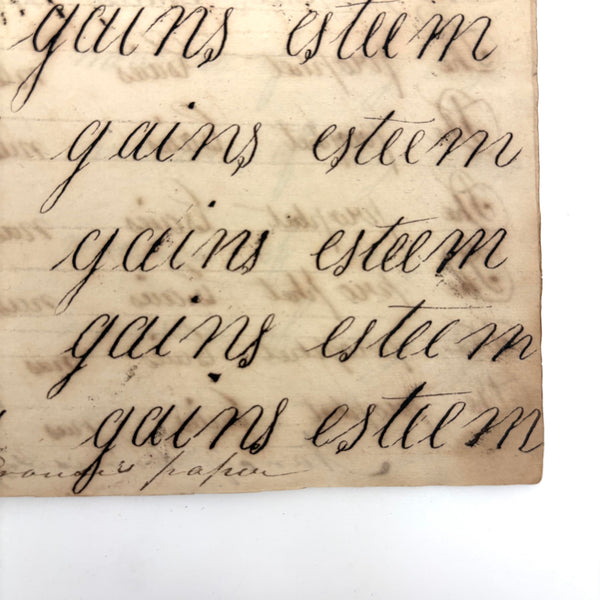 gains esteem
gains esteem
gains esteem
gains esteem
gains esteem
paper